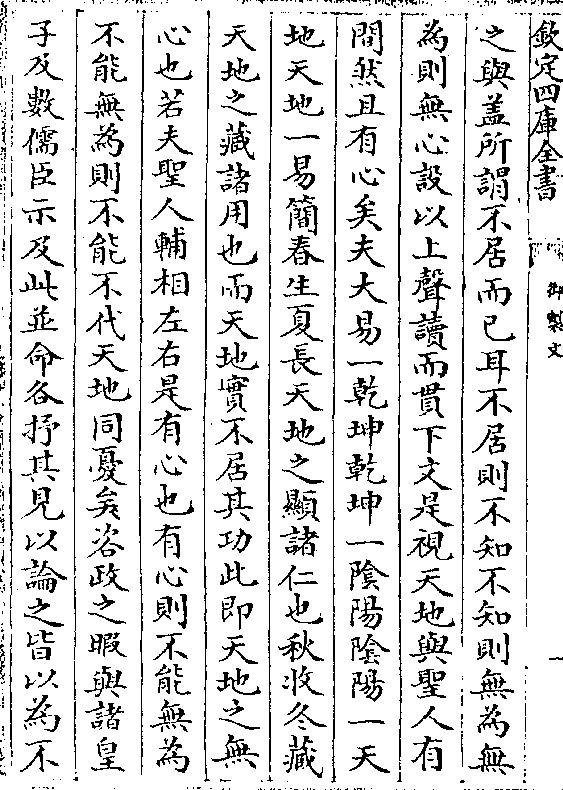 欽定四庫全書
御製文
一
之與盖所謂不居而已耳不居則不知不知則無為無
為則無心設以上聲讀而貫下文是視天地與聖人有
間然且有心矣夫大易一乾坤乾坤一隂陽隂陽一天
地天地一易簡春生夏長天地之顯諸仁也秋收冬藏
天地之藏諸用也而天地實不居其功此即天地之無
心也若夫聖人輔相左右是有心也有心則不能無為
不能無為則不能不代天地同憂矣咨政之暇與諸皇
子及數儒臣示及此並命各抒其見以論之皆以為不